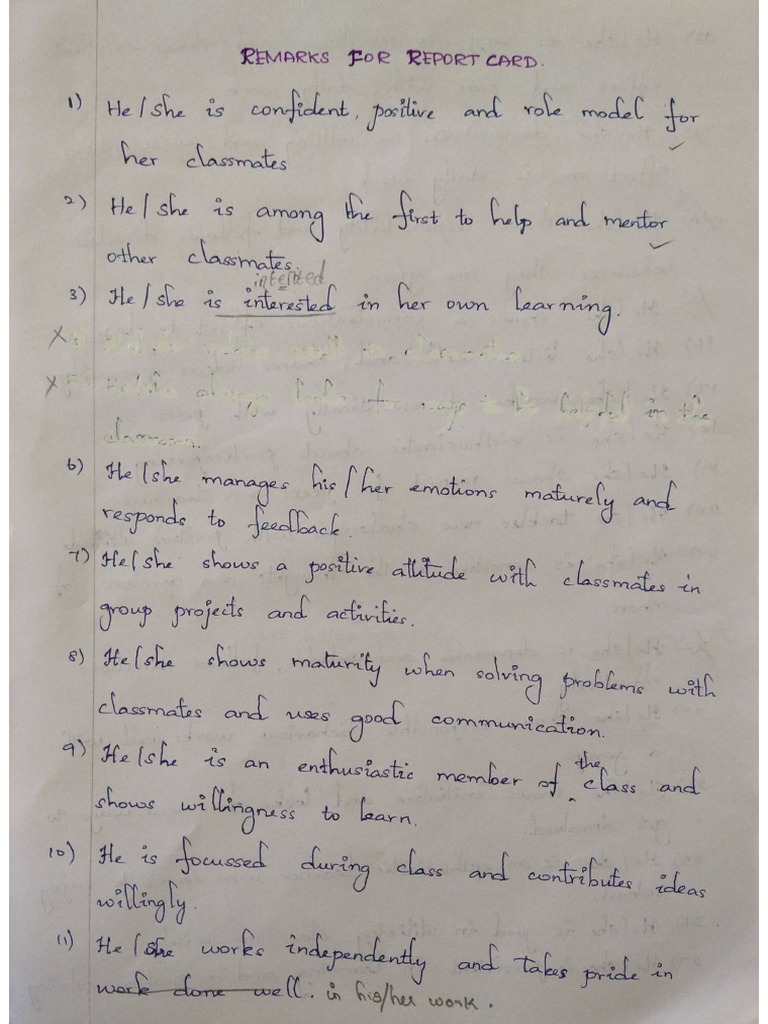 REMARKS FOR REPORT CARD.
1) He/she is confident, positive and role model for
her classmates
2) He/she is among the first to help and mentor
other classmates.
3) He/she is interested in her own learning.
in the
6) He/she manages his/her emotions maturely and
responds to feedback.
7) He/she shows a positive attitude with classmates in
group projects and activities.
8) He/she shows maturity when solving problems with
classmates and uses good communication.
9) He/she is an enthusiastic member of the class and
shows willingness to learn.
10) He is focussed during class and contributes ideas
willingly.
11) He/she works independently and takes pride in
work done well. in his/her work.